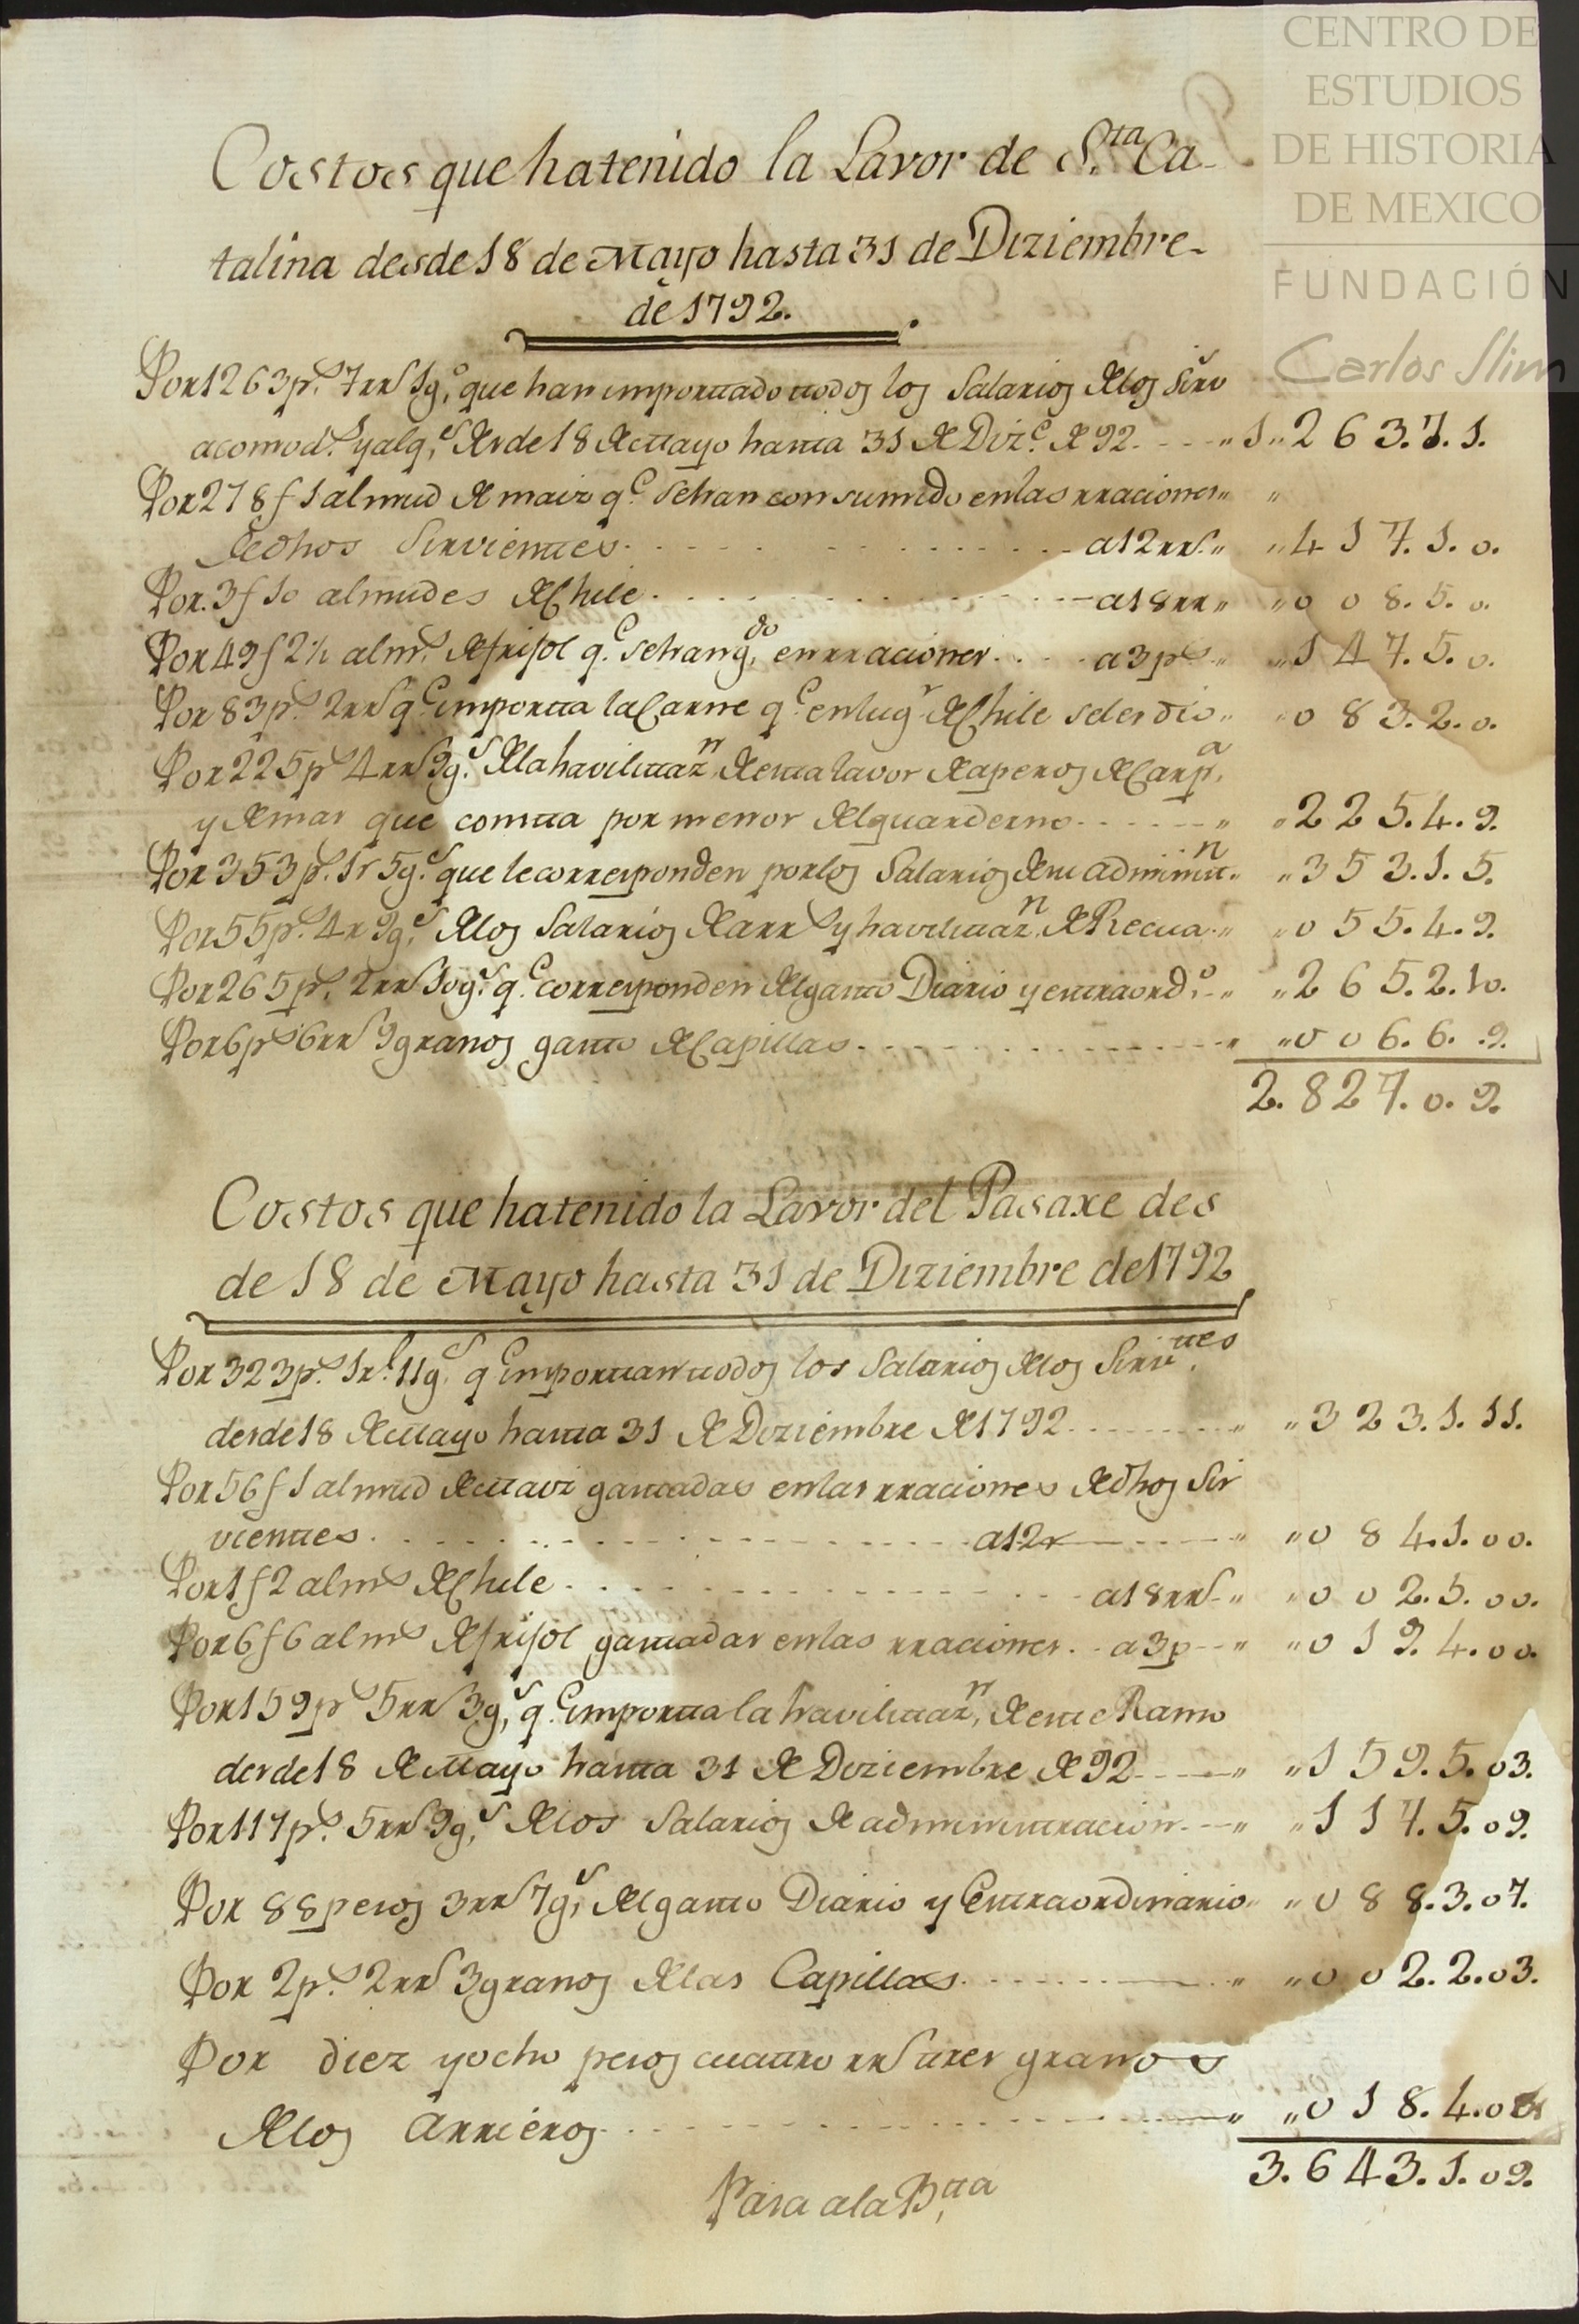 CENTRO DE
ESTUDIOS
DE HISTORIA
DE MEXICO
FUNDACIÓN
Carlos Slim
Costos que ha tenido la Lavor de S.ta Ca-
talina desde 18 de Mayo hasta 31 de Diziembre-
de 1792.
Por 1263 p.s 7 rr.s 1 g.o que han importado todos los Salarios de los Sirv.s
acomod.s y alq.s desde 18 de Mayo hasta 31 de Diz.e de 92. - - - " 1 " 2 6 3. 7. 1.
Por 278 f 1 almud de maiz q.e se han consumido en las rraciones " "
de dhos Sirvientes. - - - a 12 rr.s " " 4 1 7. 1. 0.
Por. 3 f 10 almudes de Chile. - - - a 18 rr " " 0 0 8. 5. 0.
Por 49 f 2½ alm.s de frisol q.e se han g.do en rraciones. - - - a 3 p.s " " 1 4 7. 5. 0.
Por 83 p.s 2 rr.s q.e importa la Carne q.e en lug.r de Chile se les dio " " 0 8 3. 2. 0.
Por 225 p.s 4 rr.s 9 g.s de la havilitaz.n de esta lavor de aperos de Carp.a
y demas que consta por menor del quarderno - - - " " 2 2 5. 4. 9.
Por 353 p.s 1 r 5 g.s que le corresponden por los Salarios de su administ.n " " 3 5 3. 1. 5.
Por 55 p.s 4 r 9 g.s de los Salarios de arr.s y havilitaz.n de Recua " " 0 5 5. 4. 9.
Por 265 p.s 2 rr.s 10 g.s q.e corresponden del gasto Diario y extraord.o - " " 2 6 5. 2. 10.
Por 6 p.s 6 rr.s 9 granos gasto de Capillas - - - " " 0 0 6. 6. 9.
2. 8 2 7. 0. 9.
Costos que ha tenido la Lavor del Pasaxe des
de 18 de Mayo hasta 31 de Diziembre de 1792
Por 323 p.s 1 r.l 11 g.s q.e importan todos los Salarios de los Sirv.tes
desde 18 de Mayo hasta 31 de Diziembre de 1792 - - - " " 3 2 3. 1. 11.
Por 56 f 1 almud de Maiz gastadas en las rraciones de dhos Sir
vientes. - - - a 12 r - - - " " 0 8 4. 1. 00.
Por 1 f 2 alm.s de Chile. - - - a 18 rr.s - " " 0 0 2. 5. 00.
Por 6 f 6 alm.s de frisol gastadas en las rraciones. - a 3 p - - " " 0 1 9. 4. 00.
Por 159 p.s 5 rr.s 3 g.s q.e importa la havilitaz.n de este Ramo
desde 18 de Mayo hasta 31 de Diziembre de 92 - - - " " 1 5 9. 5. 03.
Por 117 p.s 5 rr.s 9 g.s de los Salarios de administracion - - " " 1 1 7. 5. 09.
Por 88 pesos 3 rr.s 7 g.s del gasto Diario y Extraordinario " " 0 8 8. 3. 07.
Por 2 p.s 2 rr.s 3 granos de las Capillas - - - " " 0 0 2. 2. 03.
Por diez y ocho pesos cuatro rr.s tres granos
de los Arrieros. - - - " " 0 1 8. 4. 03
3. 6 4 3. 1. 09.
Pasa a la B.ta